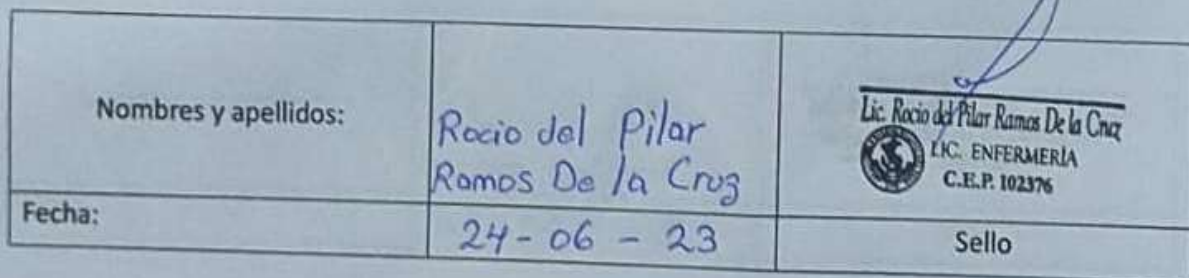 Nombres y apellidos:
Rocio del Pilar
Ramos De la Cruz
Lic. Rocio del Pilar Ramos De la Cruz
LIC. ENFERMERÍA
C.E.P. 102376
Fecha:
24-06-23
Sello